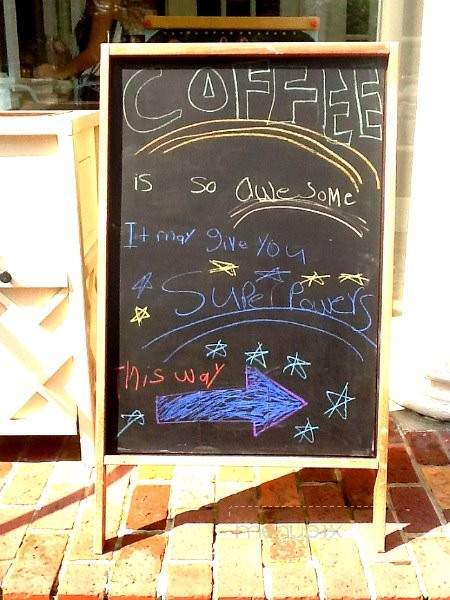 COFFEE
is so awesome
It may give you
Super Powers
This way